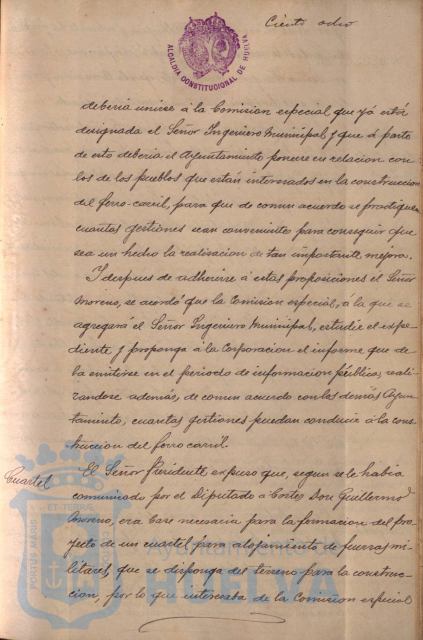 Ciento ocho
ALCALDIA CONSTITUCIONAL DE HUELVA
deberia unirse á la Comision especial que yá está
designada el Señor Ingeniero Municipal, y que á parte
de esto deberia el Ayuntamiento ponerse en relacion con
los de los pueblos que están interesados en la construccion
del ferro-carril, para que de comun acuerdo se practiquen
cuantas gestiones sean convenientes para conseguir que
sea un hecho la realizacion de tan importante mejora.
Y despues de adherirse á estas proposiciones el Señor
Moreno, se acordó que la Comision especial, á la que se
agregará el Señor Ingeniero Municipal, estudie el expe-
diente y proponga á la Corporacion el informe que de-
ba emitirse en el periodo de informacion pública, reali-
zandose además, de comun acuerdo con los demás Ayun-
tamientos, cuantas gestiones puedan conducir á la cons-
truccion del ferro carril.
Cuartel
El Señor Presidente expuso que, segun se le habia
comunicado por el Diputado a Cortes Don Guillermo
Moreno, era base necesaria para la formacion del pro-
yecto de un cuartel para alojamiento de fuerzas mi-
litares, que se disponga del terreno para la construc-
cion, por lo que interesaba de la Comision especial
PORTUS MARIS ET TERRE CUSTODIA
Ayuntamiento de
HUELVA